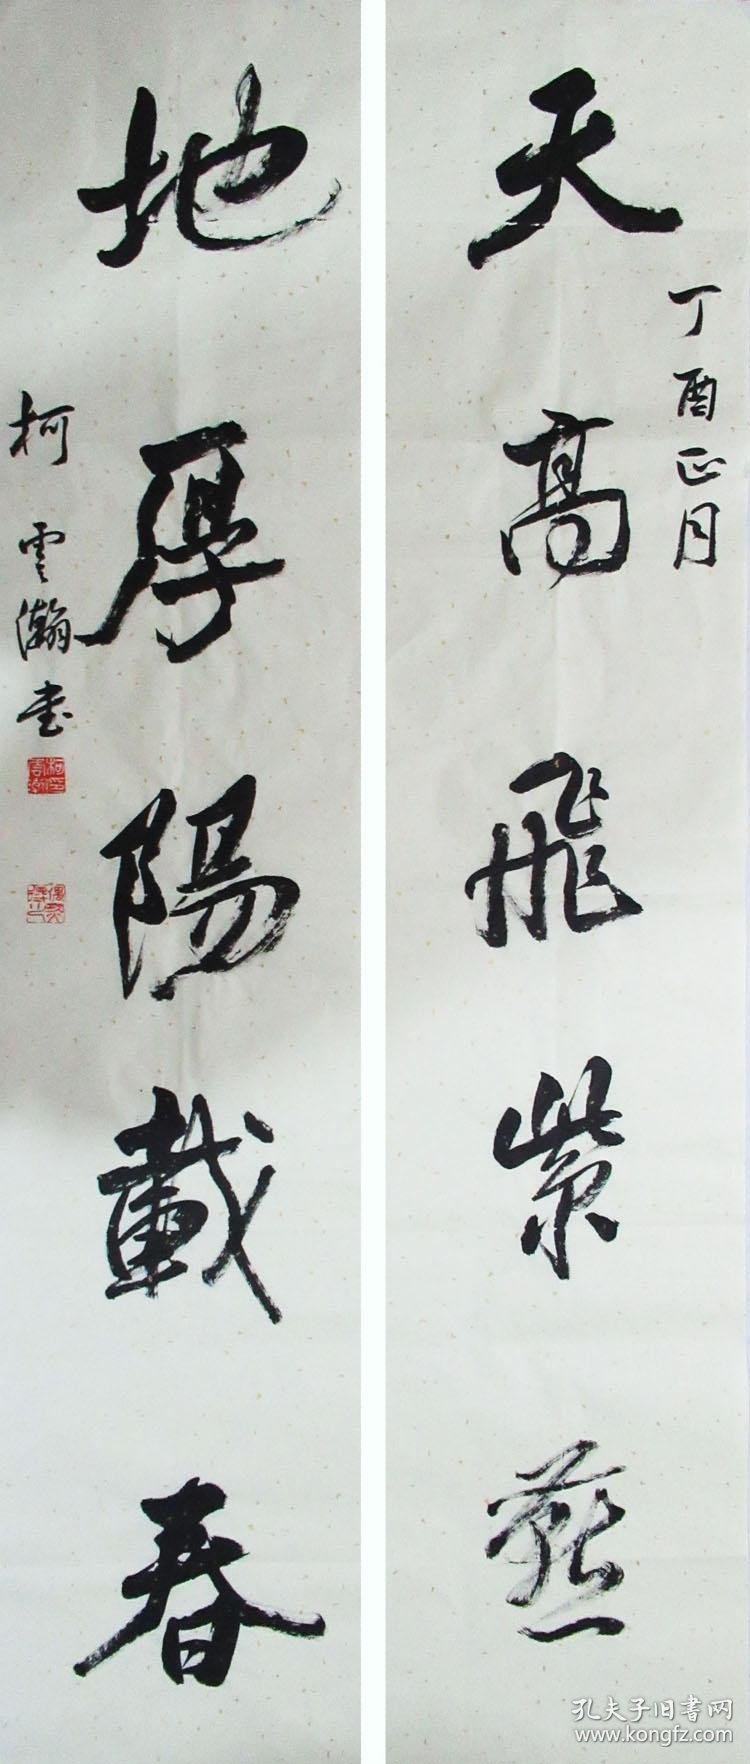 天高飛紫燕
丁酉正月
地厚陽載春
柯雲瀚书
孔夫子旧書网
www.kongfz.com